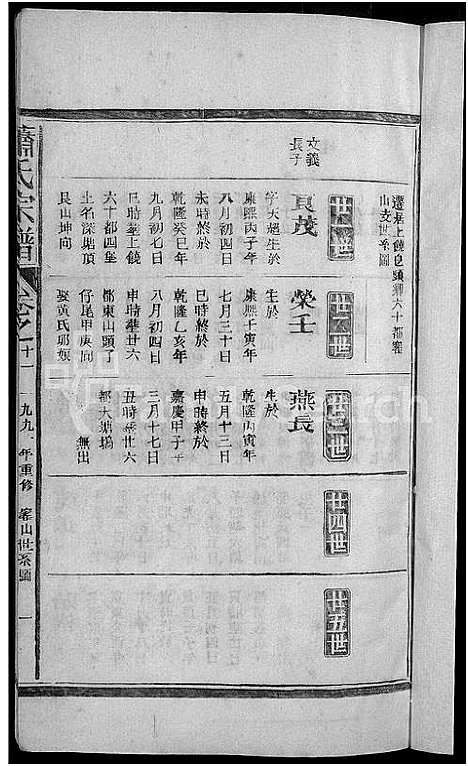 遷居上饒邑頭鄉六十都窰
山支世系圖
廿一世
文義
長子
良茂
字天超生於
康熙丙子年
八月初四日
未時終於
乾隆癸巳年
九月初七日
巳時塟上饒
六十都四堡
土名深塘頂
艮山坤向
廿二世
榮壬
生於
康熙壬寅年
七月三十日
巳時終於
乾隆乙亥年
八月初四日
申時塟廿六
都東山頭了
仔尾甲庚向
娶黃氏邱娘
廿三世
燕長
生於
乾隆丙寅年
五月十三日
申時終於
嘉慶甲子年
三月十七日
丑時塟廿六
都大塘塢
無出
廿四世
廿五世
蕭氏宗譜
卷之十一
一九九 年重修
窰山世系圖
一